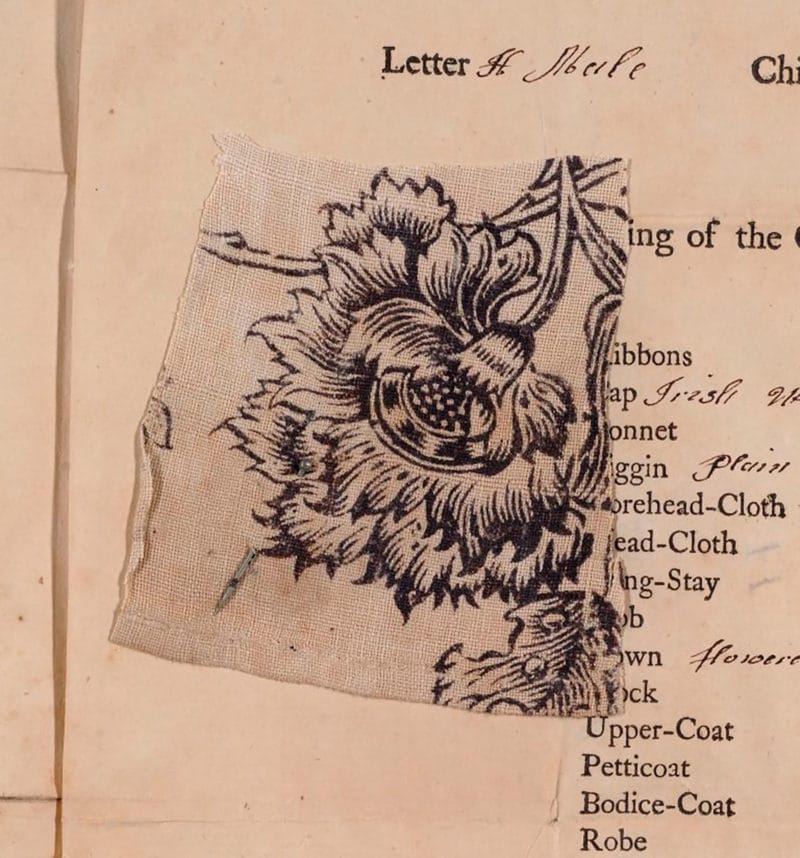 Letter A Male Chi
ing of the
ibbons
ap Irish
onnet
ggin plain
orehead-Cloth
ead-Cloth
ng-Stay
b
own flowere
ock
Upper-Coat
Petticoat
Bodice-Coat
Robe